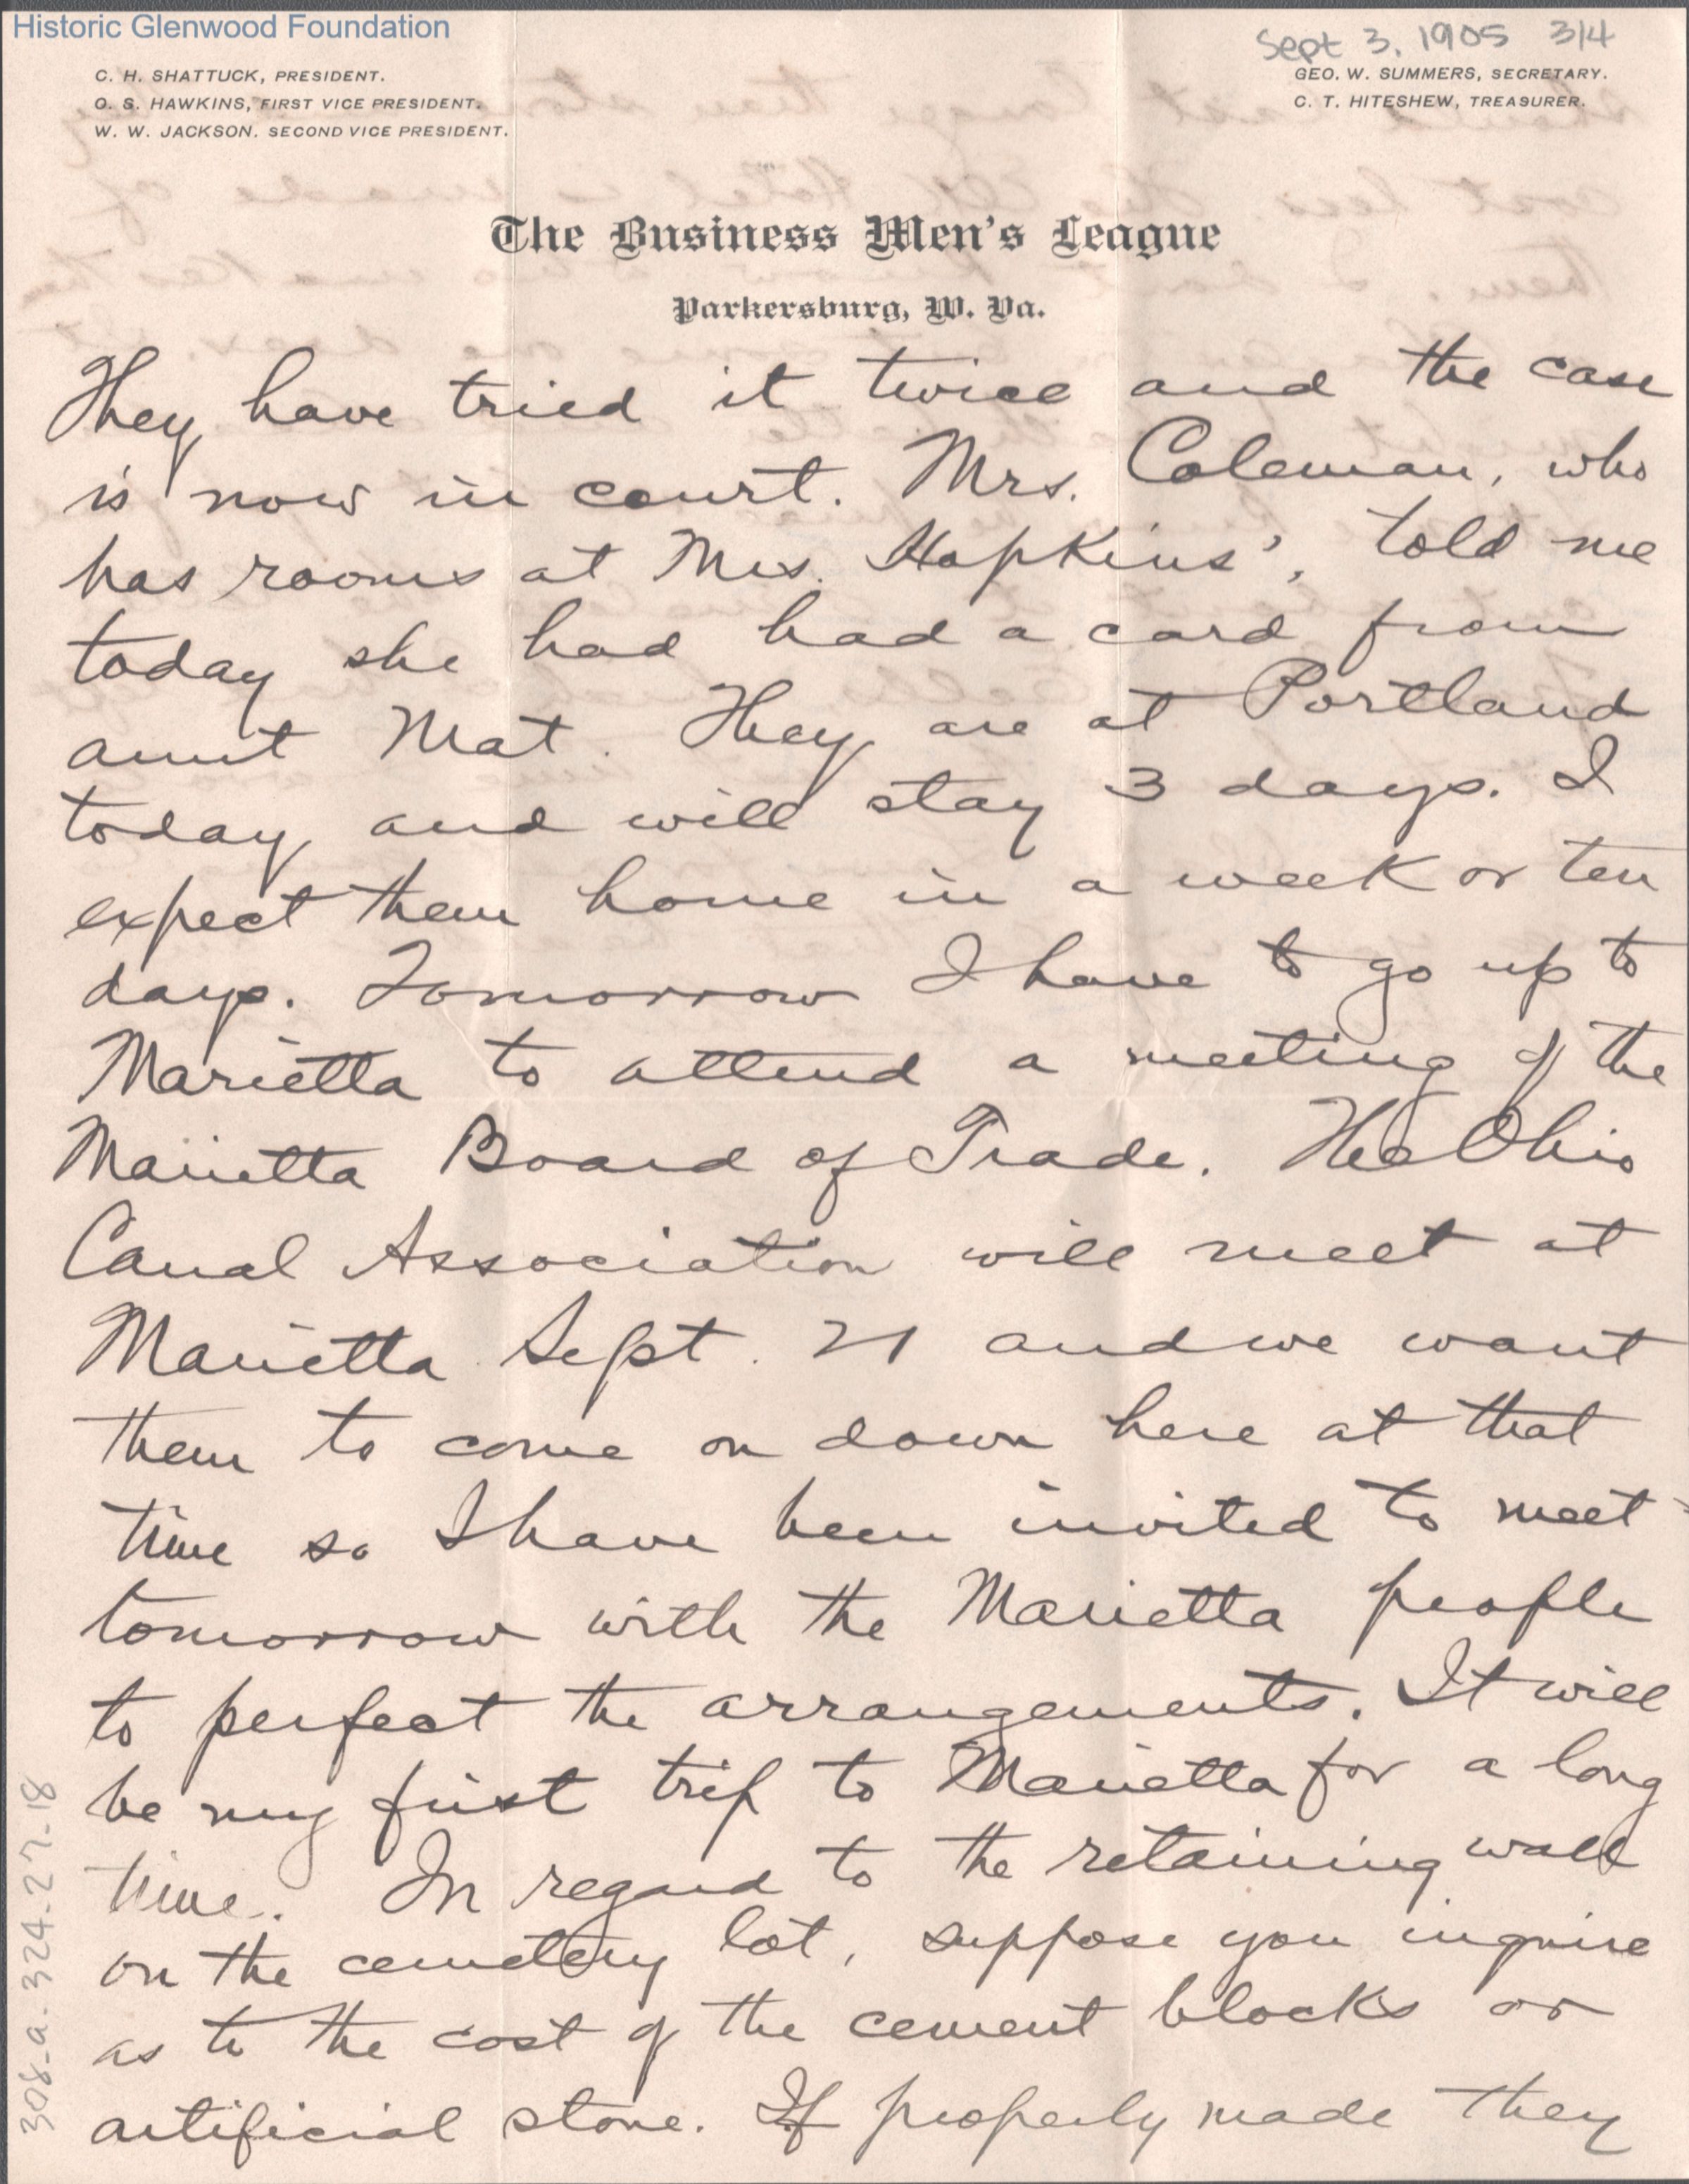 Historic Glenwood Foundation
Sept 3, 1905 3/4
C. H. SHATTUCK, PRESIDENT.
O. S. HAWKINS, FIRST VICE PRESIDENT.
W. W. JACKSON. SECOND VICE PRESIDENT.
GEO. W. SUMMERS, SECRETARY.
C. T. HITESHEW, TREASURER.
The Business Men's League
Parkersburg, W. Va.
They have tried it twice and the case
is now in court. Mrs. Coleman, who
has rooms at Mrs. Hopkins', told me
today she had had a card from
aunt Mat. They are at Portland
today and will stay 3 days. I
expect them home in a week or ten
days. Tomorrow I have to go up to
Marietta to attend a meeting of the
Marietta Board of Trade. The Ohio
Canal Association will meet at
Marietta Sept. 21 and we want
them to come on down here at that
time so I have been invited to meet
tomorrow with the Marietta people
to perfect the arrangements. It will
be my first trip to Marietta for a long
time. In regard to the retaining wall
on the cemetery lot, suppose you inquire
as to the cost of the cement blocks or
artificial stone. If properly made they
308-a-324-27-18